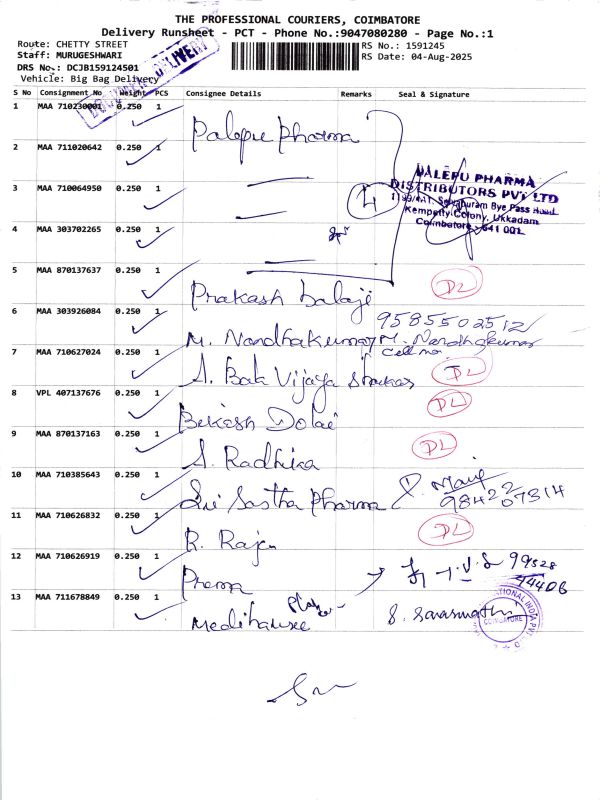 THE PROFESSIONAL COURIERS, COIMBATORE
Delivery Runsheet - PCT - Phone No.:9047080280 - Page No.:1
Route: CHETTY STREET
RS No.: 1591245
Staff: MURUGESHWARI
RS Date: 04-Aug-2025
DRS No.: DCJB159124501
Vehicle: Big Bag Delivery
DELIVERY
S No Consignment No Weight PCS Consignee Details Remarks Seal & Signature
1 MAA 710230001 0.250 1 Palepu Pharma
2 MAA 711020642 0.250 1
PALEPU PHARMA
DISTRIBUTORS PVT LTD
3 MAA 710064950 0.250 1 4
Bye Pass Road
Kempetty Colony, Ukkadam
Coimbatore - 641 001.
4 MAA 303702265 0.250 1
5 MAA 870137637 0.250 1 Prakash balaji DL
6 MAA 303926084 0.250 1 M. Nandhakumar 9585502512
M. Nandhakumar
Cell no
7 MAA 710627024 0.250 1 A. Bala Vijaya DL
8 VPL 407137676 0.250 1 Bekesh Dolai DL
9 MAA 870137163 0.250 1 S. Radhika DL
10 MAA 710385643 0.250 1 Sri Sastha Pharma 98422 07314
11 MAA 710626832 0.250 1 R. Raju DL
12 MAA 710626919 0.250 1 Prema 99528
44406
13 MAA 711678849 0.250 1 Medihause S. Saraswathi
COIMBATORE